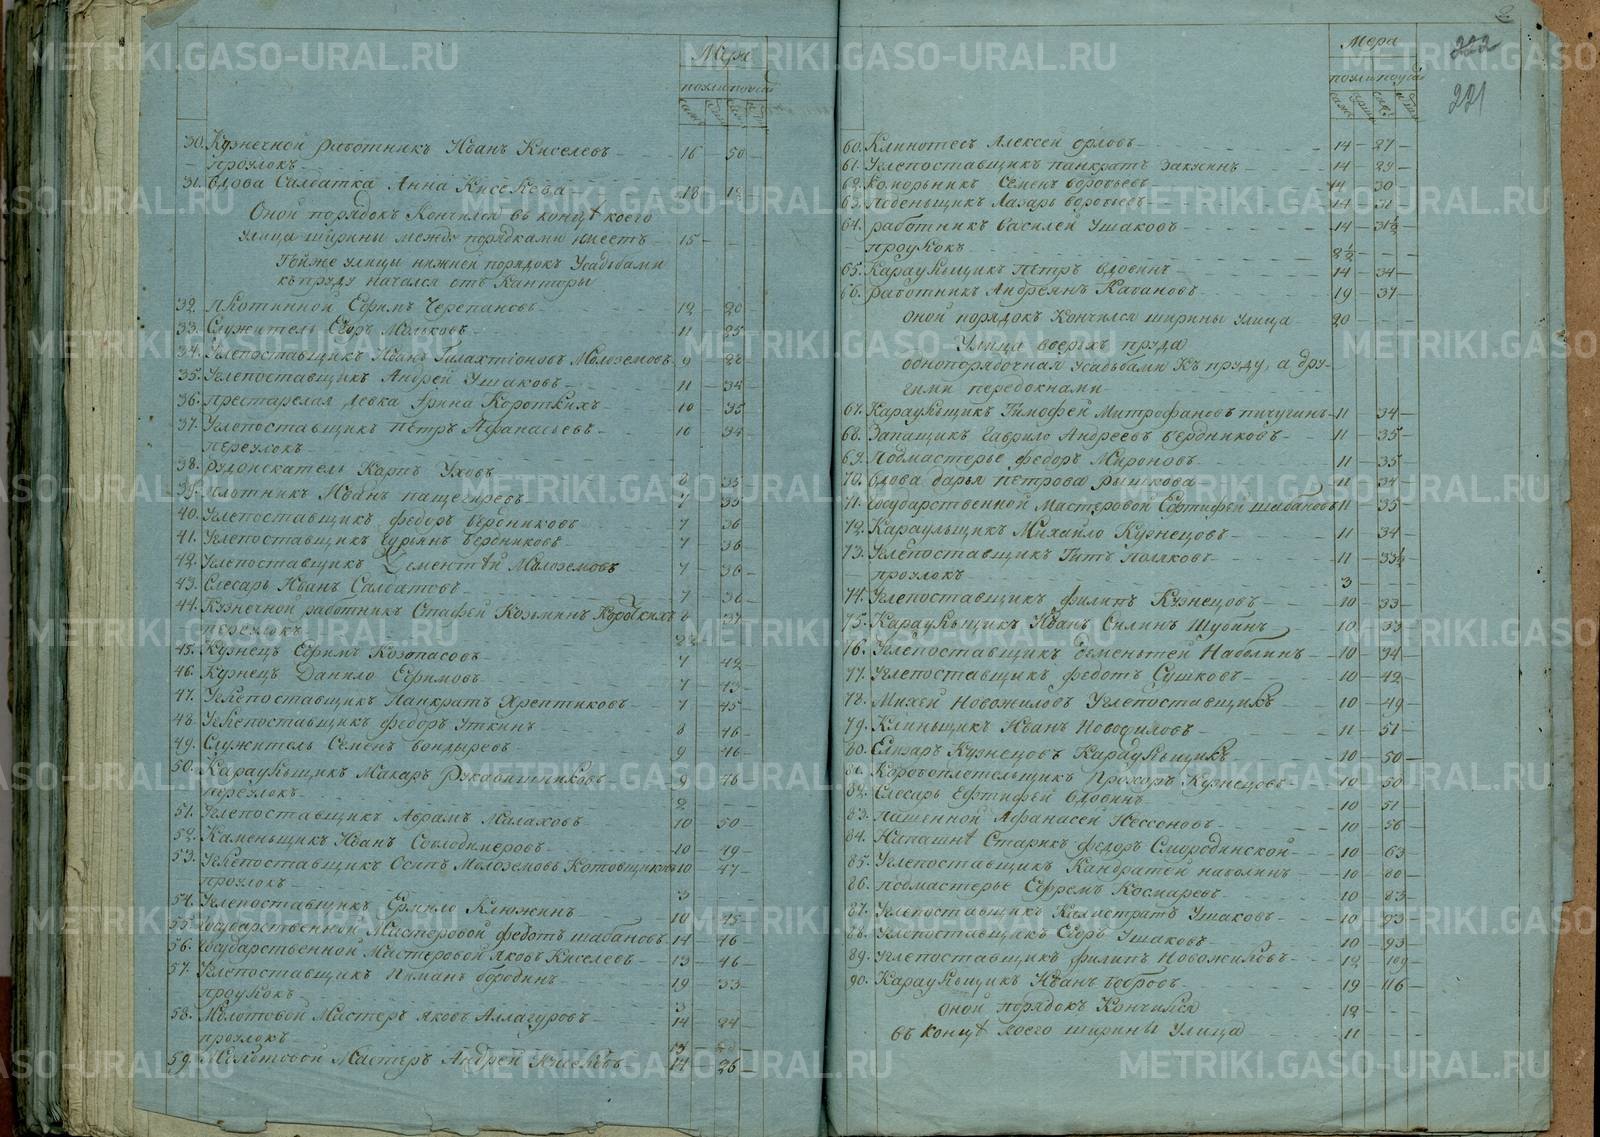 Мера
по улицо усад
30. Кузнечной работникъ Иванъ Киселевъ 16 50
проулокъ
31. Вдова Салдатка Анна Киселева 18 12
Оной порядокъ Кончился въ концѣ коего
улица ширины между порядками имеетъ 15
Той же улицы нижней порядокъ Усадьбами
къ пруду начался отъ Канторы
32. Плотинной Ефимъ Черепановъ 12 20
33. Служитель Егоръ Мальковъ 11 25
34. Углепоставщикъ Иванъ Галахтіоновъ Малоземовъ 9 22
35. Углепоставщикъ Андрей Ушаковъ 11 34
36. Престарелая девка Арина Короткихъ 10 35
37. Углепоставщикъ Петръ Афанасьевъ 10 34
переулокъ
38. Рудоискатель Карпъ Уховъ 8 35
39. Плотникъ Иванъ Пащегоревъ 7 35
40. Углепоставщикъ Федоръ Бердниковъ 7 36
41. Углепоставщикъ Гурьянъ Бердниковъ 7 36
42. Углепоставщикъ Дементей Малоземовъ 7 36
43. Слесарь Иванъ Салдатовъ 7 36
44. Кузнечной работникъ Евстафей Козминъ Коротких 8 37
переулокъ 22
45. Кузнецъ Ефимъ Козопасовъ 7 42
46. Кузнец Данило Ефимовъ 7 43
47. Углепоставщикъ Панкратъ Хрептиковъ 7 45
48. Углепоставщикъ Федоръ Уткинъ 8 46
49. Служитель Семенъ Бондыревъ 9 46
50. Караульщикъ Макаръ Ржавитинковъ 9 46
переулокъ 2
51. Углепоставщикъ Аврамъ Малаховъ 10 50
52. Каменьщикъ Иванъ Солодимеровъ 10 49
53. Углепоставщикъ Осипъ Малоземовъ Котовщиковъ 10 47
проулокъ 3
54. Углепоставщикъ Ермило Клюжинъ 10 45
55. Государственной Мастеровой Федотъ Шабановъ 14 46
56. Государственной Мастеровой Яковъ Киселевъ 13 46
57. Углепоставщикъ Пиманъ Бородинъ 19 33
проулокъ 3
58. Молотовой Мастеръ Яковъ Аллагуровъ 14 24
проулокъ
59. Молотовой Мастеръ Андрей Киселевъ 14 26
222
221
Мера
по улицо усад
60. Клинотесъ Алексей Орловъ 14 27
61. Углепоставщикъ Панкратъ Закусинъ 14 29
62. Коморникъ Семенъ Воробьевъ 14 30
63. Поденьщикъ Лазарь Воробьевъ 14 31
64. Работникъ Василей Ушаковъ 14 31½
проулокъ 8½
65. Караульщикъ Петръ Вдовинъ 14 34
66. Работникъ Андреянъ Кабановъ 19 37
оной порядокъ Кончился ширины улица 20
Улица вверхъ пруда
однопорядочная усадьбами къ пруду, а дру-
гими передокнами
67. Караульщикъ Тимофей Митрофановъ Пичугинъ 11 34
68. Запащикъ Гаврило Андреевъ Бердниковъ 11 35
69. Подмастерье Федоръ Мироновъ 11 35
70. Вдова Дарья Петрова Рышкова 11 34
71. Государственной Мастеровой Евтифей Шабановъ 11 35
72. Караульщикъ Михайло Кузнецовъ 11 34
73. Углепоставщикъ Титъ Поляковъ 11 33½
проулокъ 3
74. Углепоставщикъ Филипъ Кузнецовъ 10 33
75. Караульщикъ Иванъ Силинъ Шубинъ 10 33
76. Углепоставщикъ Деменьтей Наболинъ 10 34
77. Углепоставщикъ Федотъ Сушковъ 10 42
78. Михей Новожиловъ Углепоставщикъ 10 49
79. Клиньщикъ Иванъ Новосиловъ 11 51
80. Елизаръ Кузнецовъ Караульщикъ 10 50
81. Коробоплетельщикъ Прохоръ Кузнецовъ 10 50
82. Слесарь Ефтифей Вдовинъ 10 51
83. Пашенной Афанасей Нессоновъ 10 56
84. Старикъ Федоръ Смородинской 10 63
85. Углепоставщикъ Кандратей Наболинъ 10 80
86. Подмастерье Ефремъ Косаревъ 10 83
87. Углепоставщикъ Калистратъ Ушаковъ 10 93
88. Углепоставщикъ Егоръ Ушаковъ 10 93
89. Углепоставщикъ Филипъ Новожиловъ 12 109
90. Караульщикъ Иванъ Бобровъ 19 116
оной порядокъ Кончился 12
въ концѣ коего ширины улица 11
METRIKI.GASO-URAL.RU